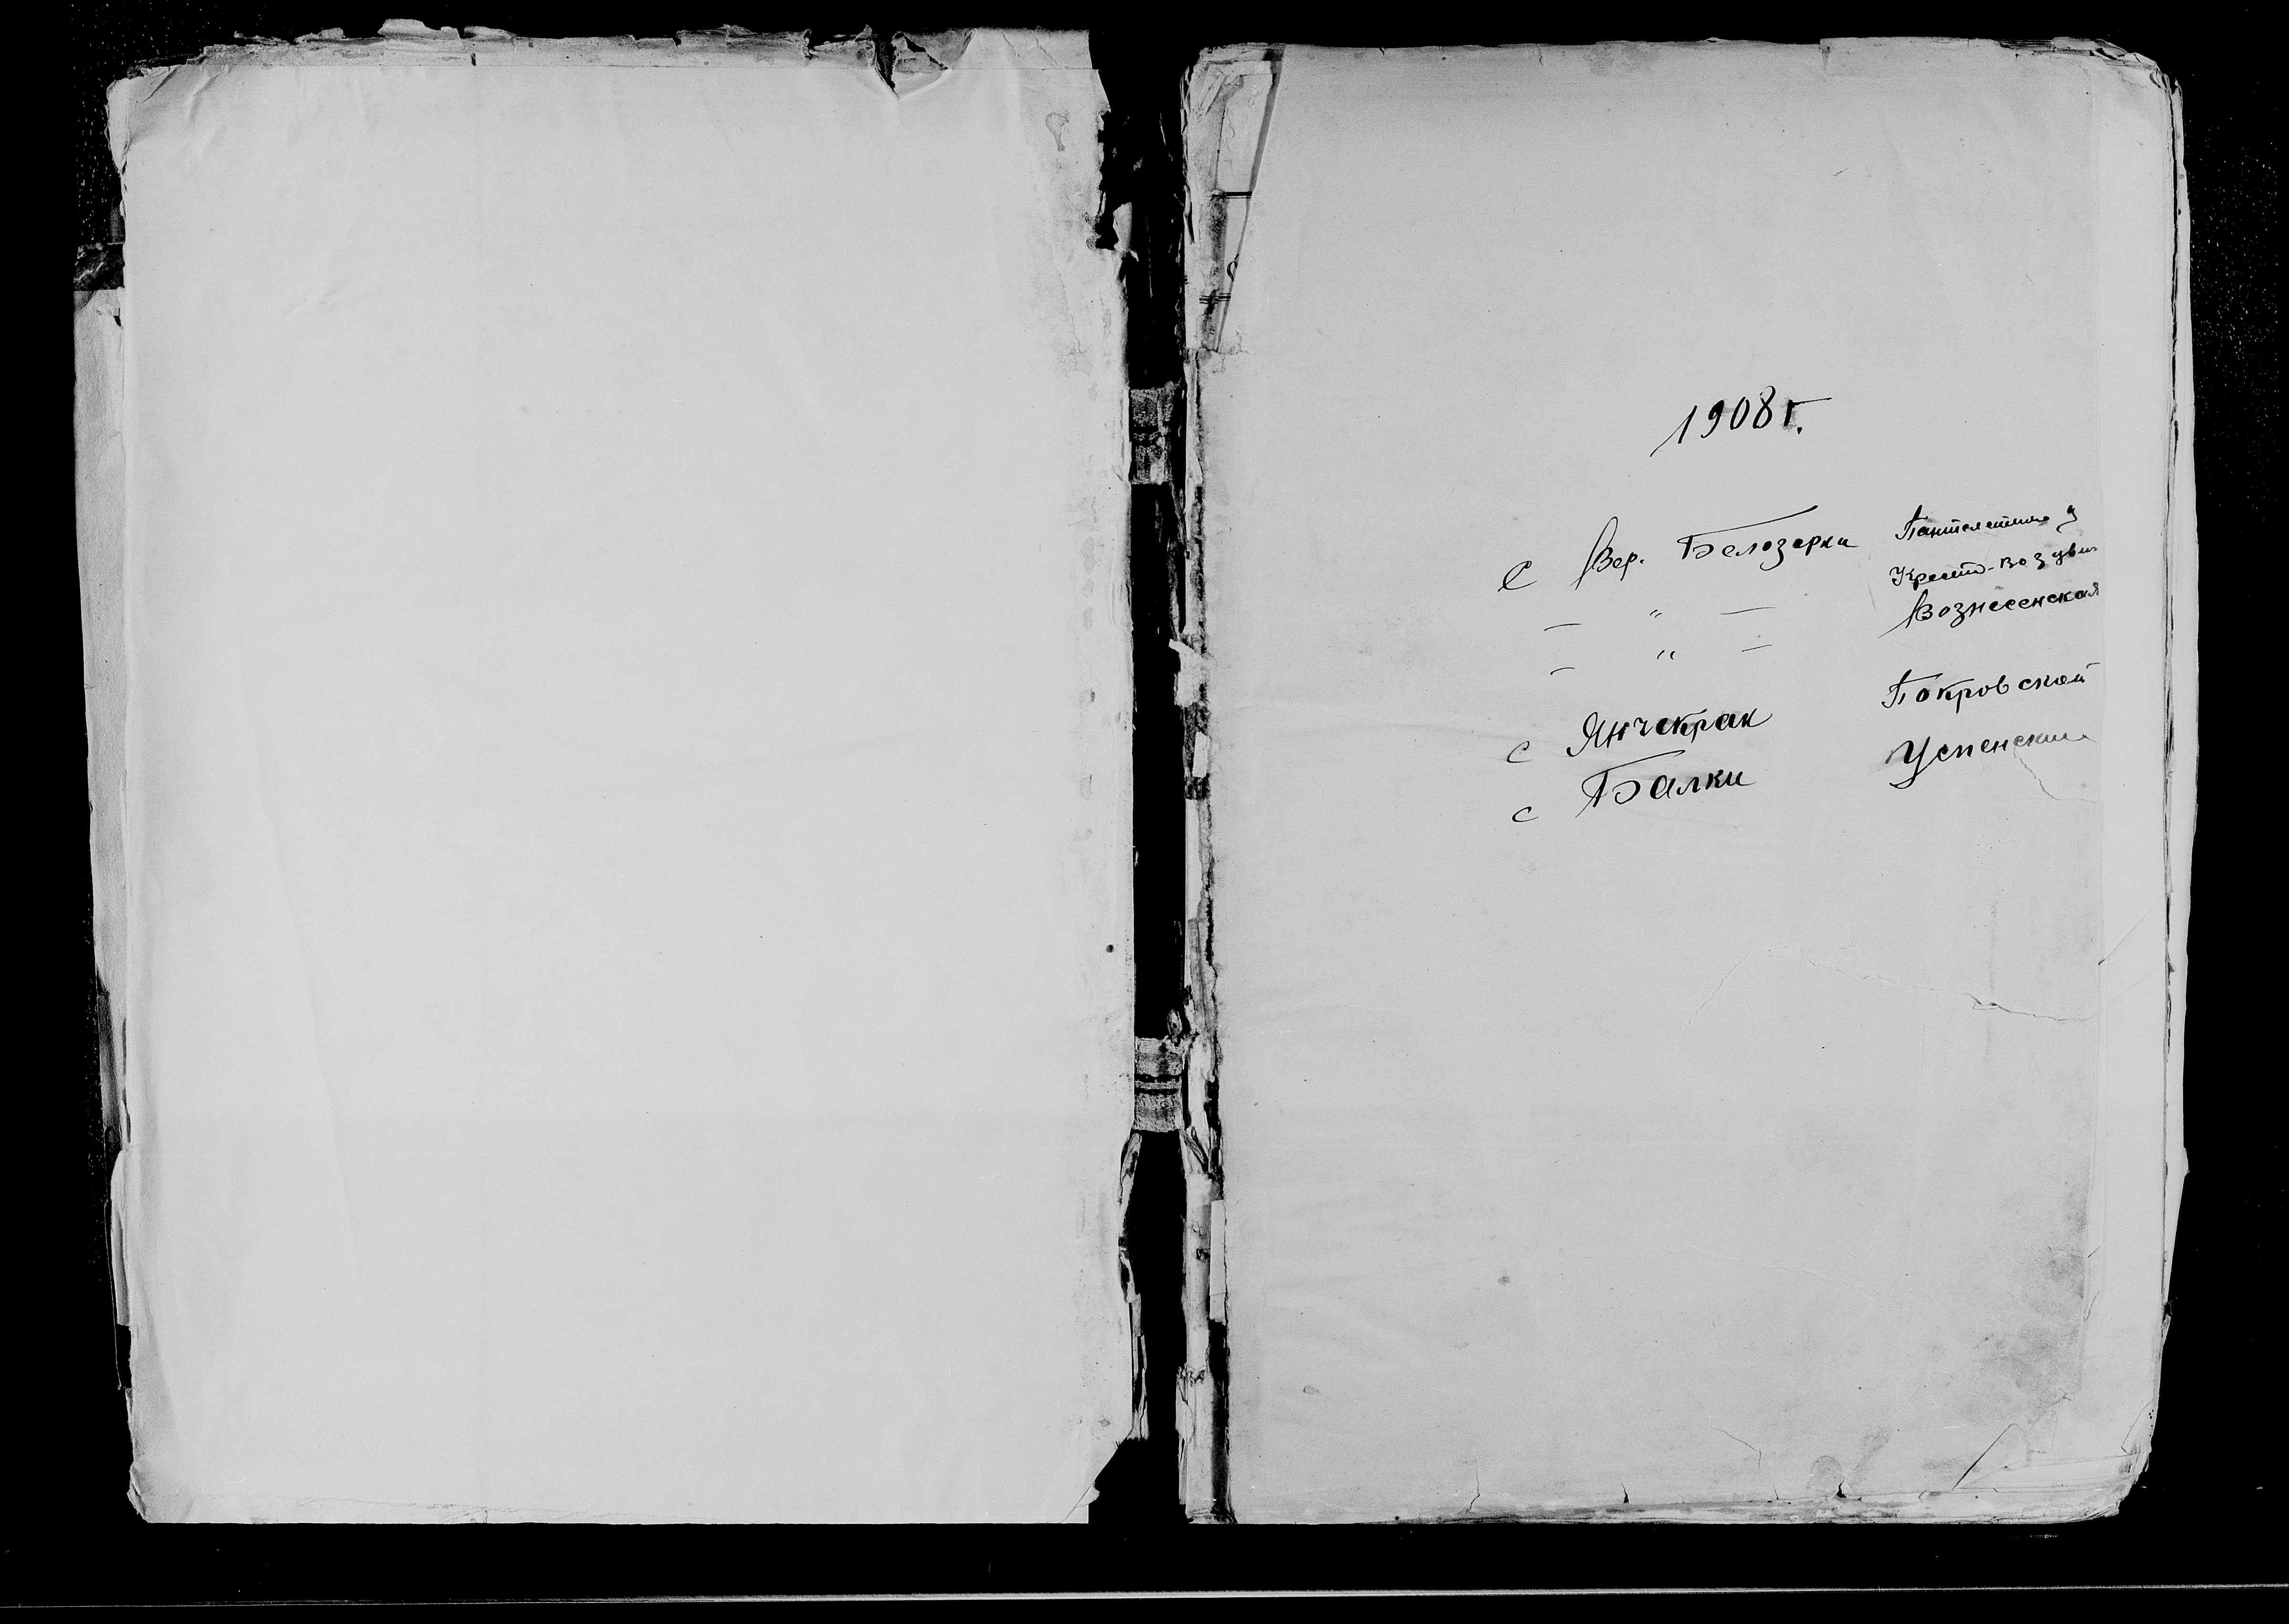 1908 г.
С Вер. Белозерки Пантелеимон ц
— " — Кресто-Воздви
— " — Вознесенская
с Янчекрак Покровской
с Балки Успенский